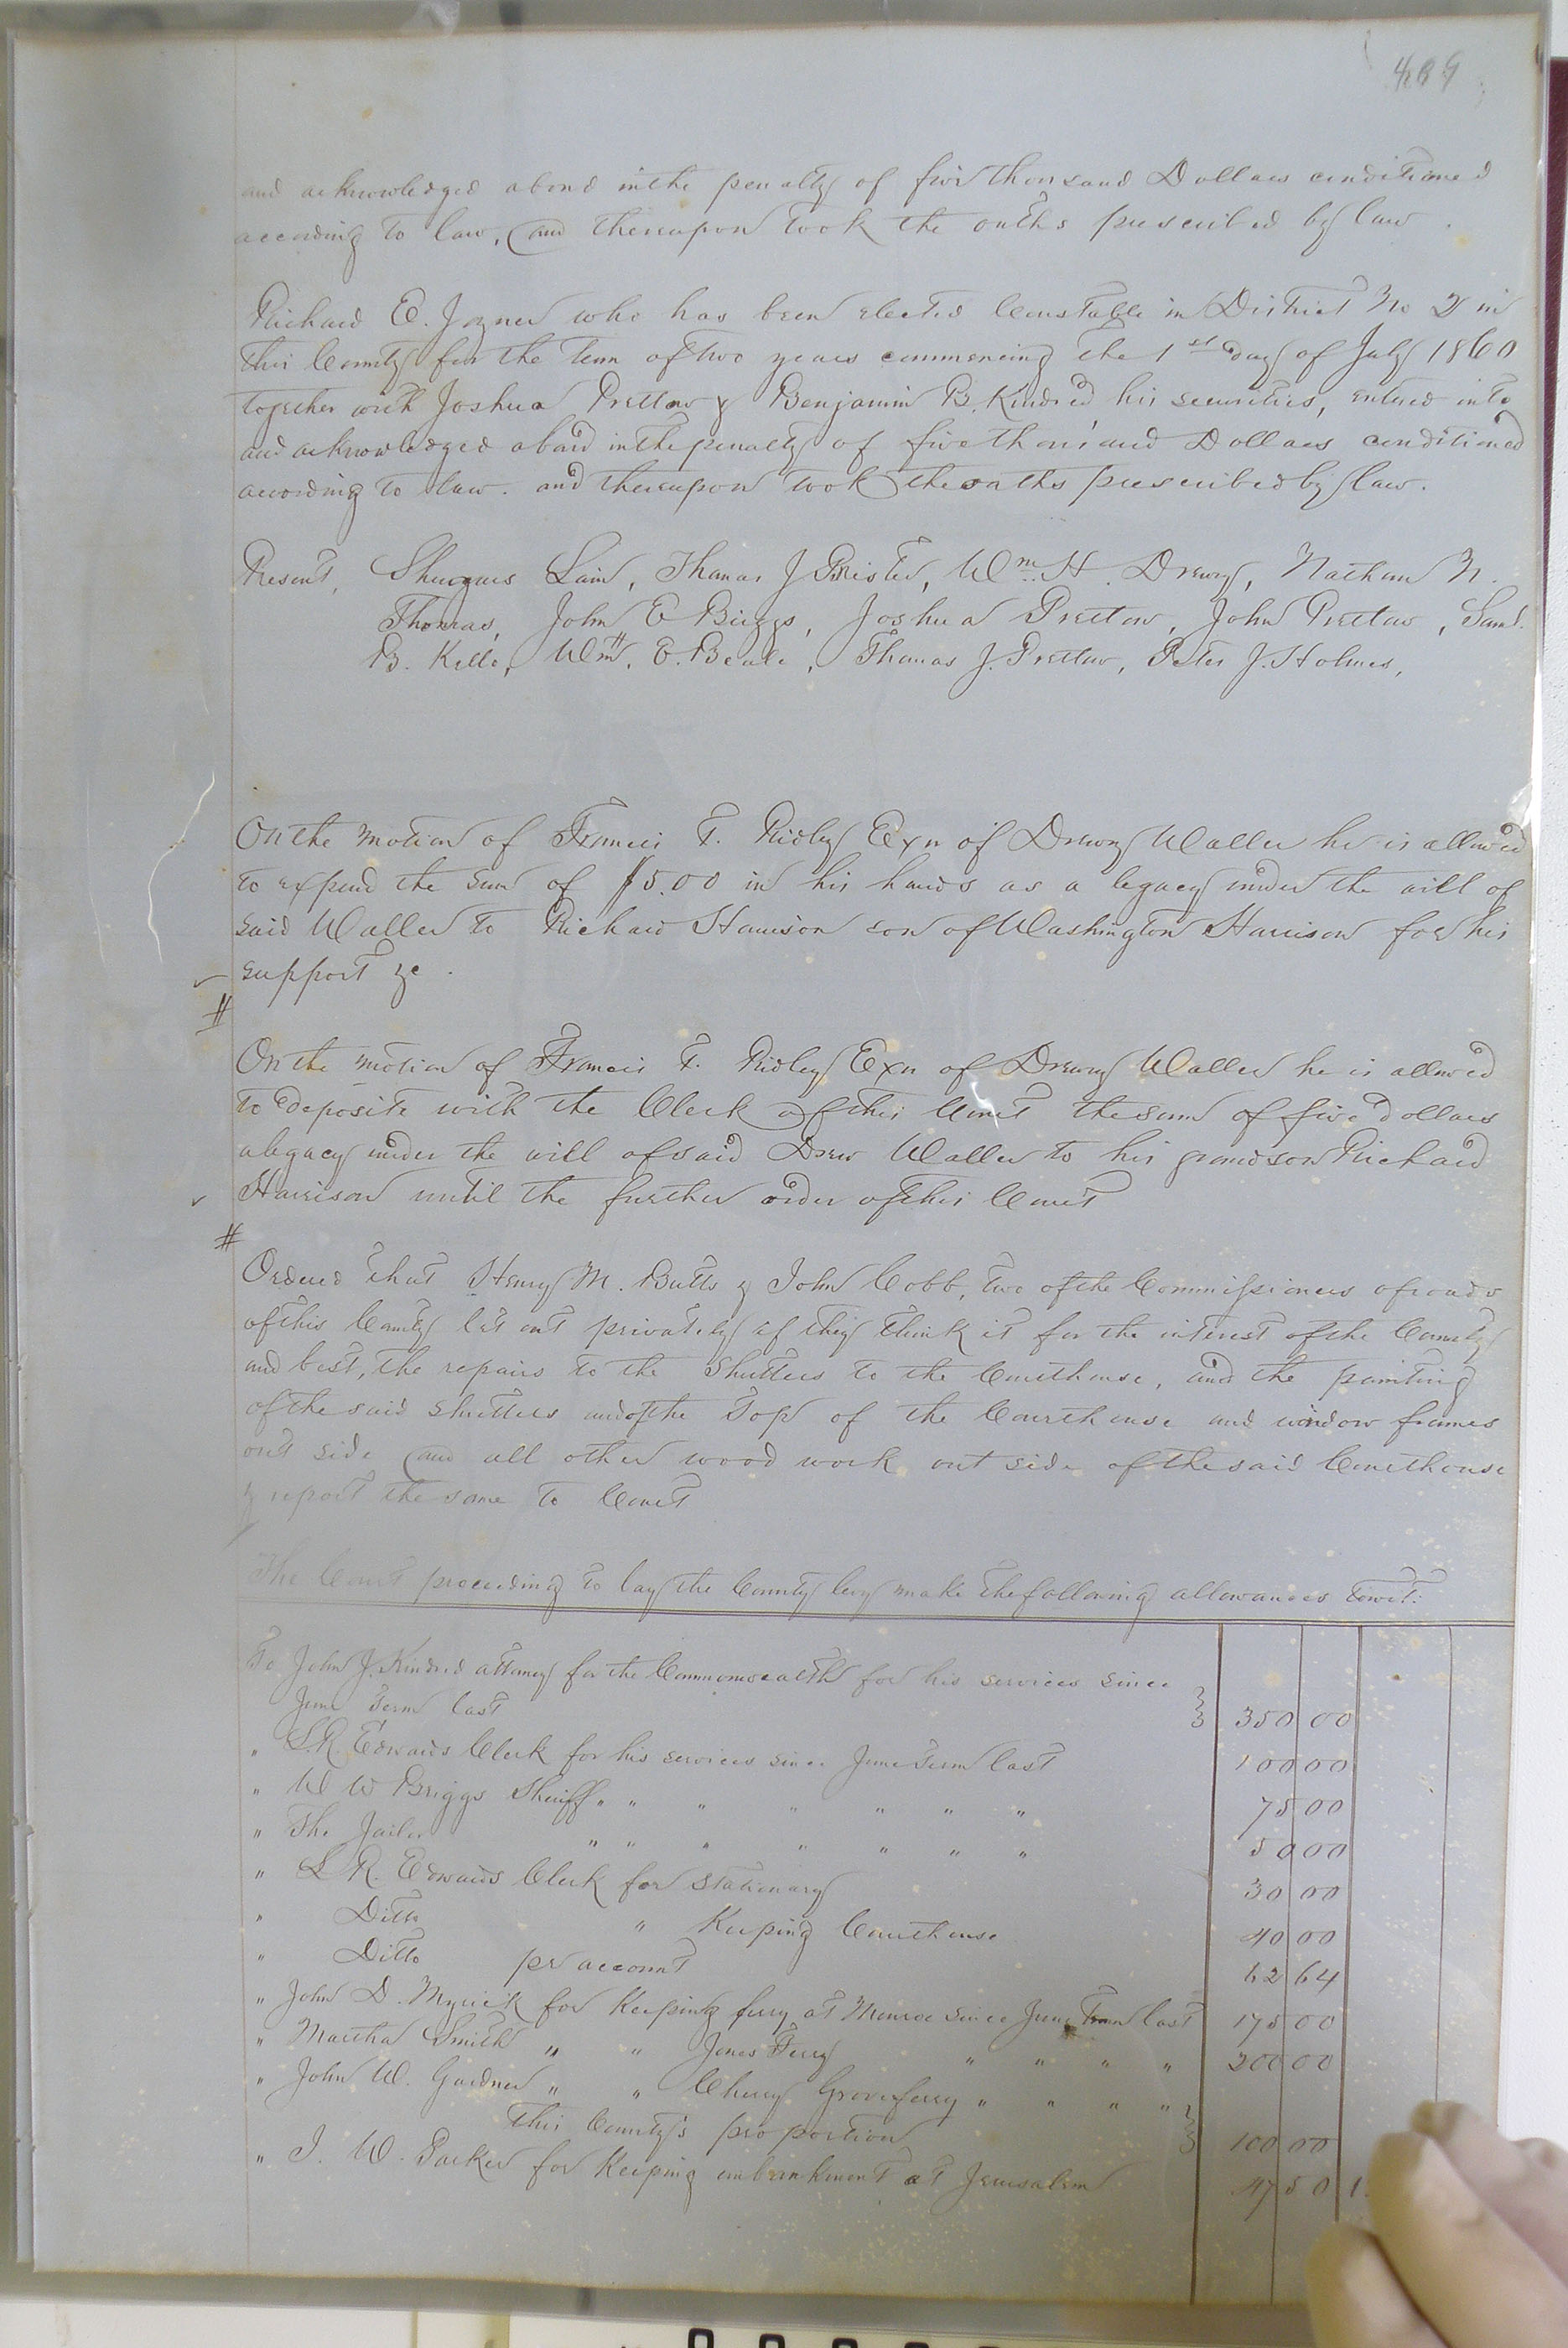 489
and acknowledged abond inthe penalty of five thousand Dollars conditioned
according to law, and thereupon took the oaths prescribed by law.
Richard E. Joyner who has been elected Constable in District No 2 in
this County for the term oftwo years commencing the 1st day of July 1860
together with Joshua Pretlow & Benjamin B. Kindred his securities, entered into
and acknowledged abond inthe penalty of five thousand Dollars conditioned
according to law. and thereupon took the oaths prescribed by law.
Present, Lain, Thomas J Pretlow, Wm. H. Drewry, Nathan N.
Thomas, John E Briggs, Joshua Pretlow, John Pretlow, Saml.
B. Kello, Wm. E. Beale, Thomas J. Pretlow, Peter J. Holmes,
On the motion of Francis T. Ridley Exr of Drewry Waller he is allowed
to expend the sum of $5.00 in his hands as a legacy under the will of
said Waller to Richard Harrison son of Washington Harrison for his
support &c.
#
On the motion of Francis T. Ridley Exr of Drewry Waller he is allowed
to deposite with the Clerk of this Court the sum of five dollars
alegacy under the will of said Drew Waller to his grandson Richard
Harrison until the further order of this Court
#
Ordered that Henry M. Butts & John Cobb, two of the Commissioners of roads
of this County let out privately if they think it for the interest of the County
and best, the repairs to the Shutters to the Courthouse, and the painting
of the said shutters and of the Top of the Courthouse and window frames
out side and all other wood work out side of the said Courthouse
& report the same to Court
The Court proceeding to lay the County levy make the following allowances towit:
To John J. Kindred attorney for the Commonwealth for his services since
June Term last 350 00
" L.R. Edwards Clerk for his services since June Term last 100 00
" W W Briggs Sheriff " " " " " " " 75 00
" The Jailer " " " " " " " 50 00
" L R. Edwards Clerk for Stationary 30 00
" Ditto " Keeping Courthouse 40 00
" Ditto pr account 62 64
" John D. Myrick for Keeping ferry at Monroe since June Term last 175 00
" Martha Smith " " Jones Ferry " " " " 200 00
" John W. Gardner " " Cherry Grove ferry " " " "
this County's proportion 100 00
" J. W. Parker for Keeping embankment at Jerusalem 47 50